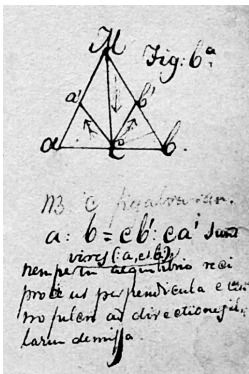 M
Fig: 6ª
a' b'
a c b.
NB. C
a: b = cb': ca' sunt
vires (: a, et b:)
nempe in aequilibrio reci
proce ut perpendicula e cen
tro ad directiones
larum demissa.